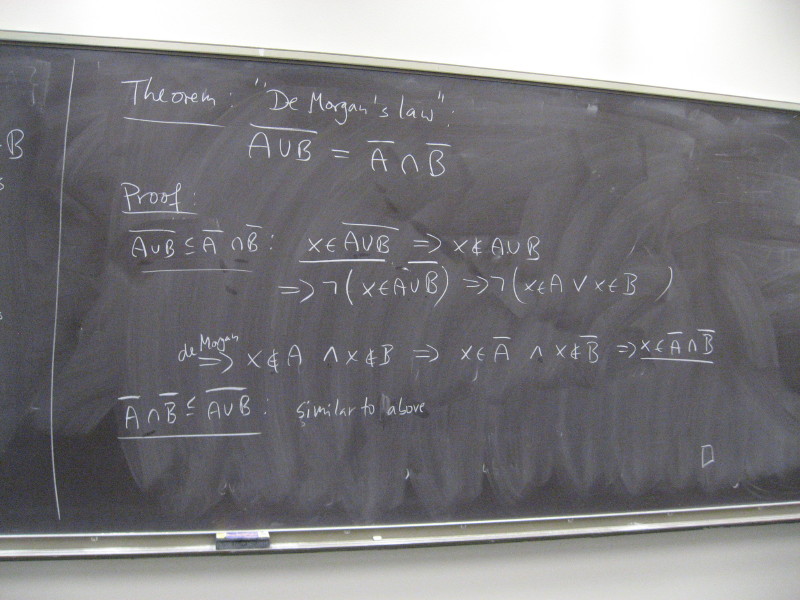 B
Theorem: "De Morgan's law":
A̅∪̅B̅ = A̅ ∩ B̅
Proof:
A̅∪̅B̅ ⊆ A̅ ∩ B̅ : x∈A̅∪̅B̅ ⇒ x∉A∪B
⇒ ¬(x∈A∪B) ⇒ ¬(x∈A ∨ x∈B )
de Morgan
⇒ x∉A ∧ x∉B ⇒ x∈A̅ ∧ x∉B̅ ⇒ x∈A̅∩B̅
A̅ ∩ B̅ ⊆ A̅∪̅B̅ : similar to above
□